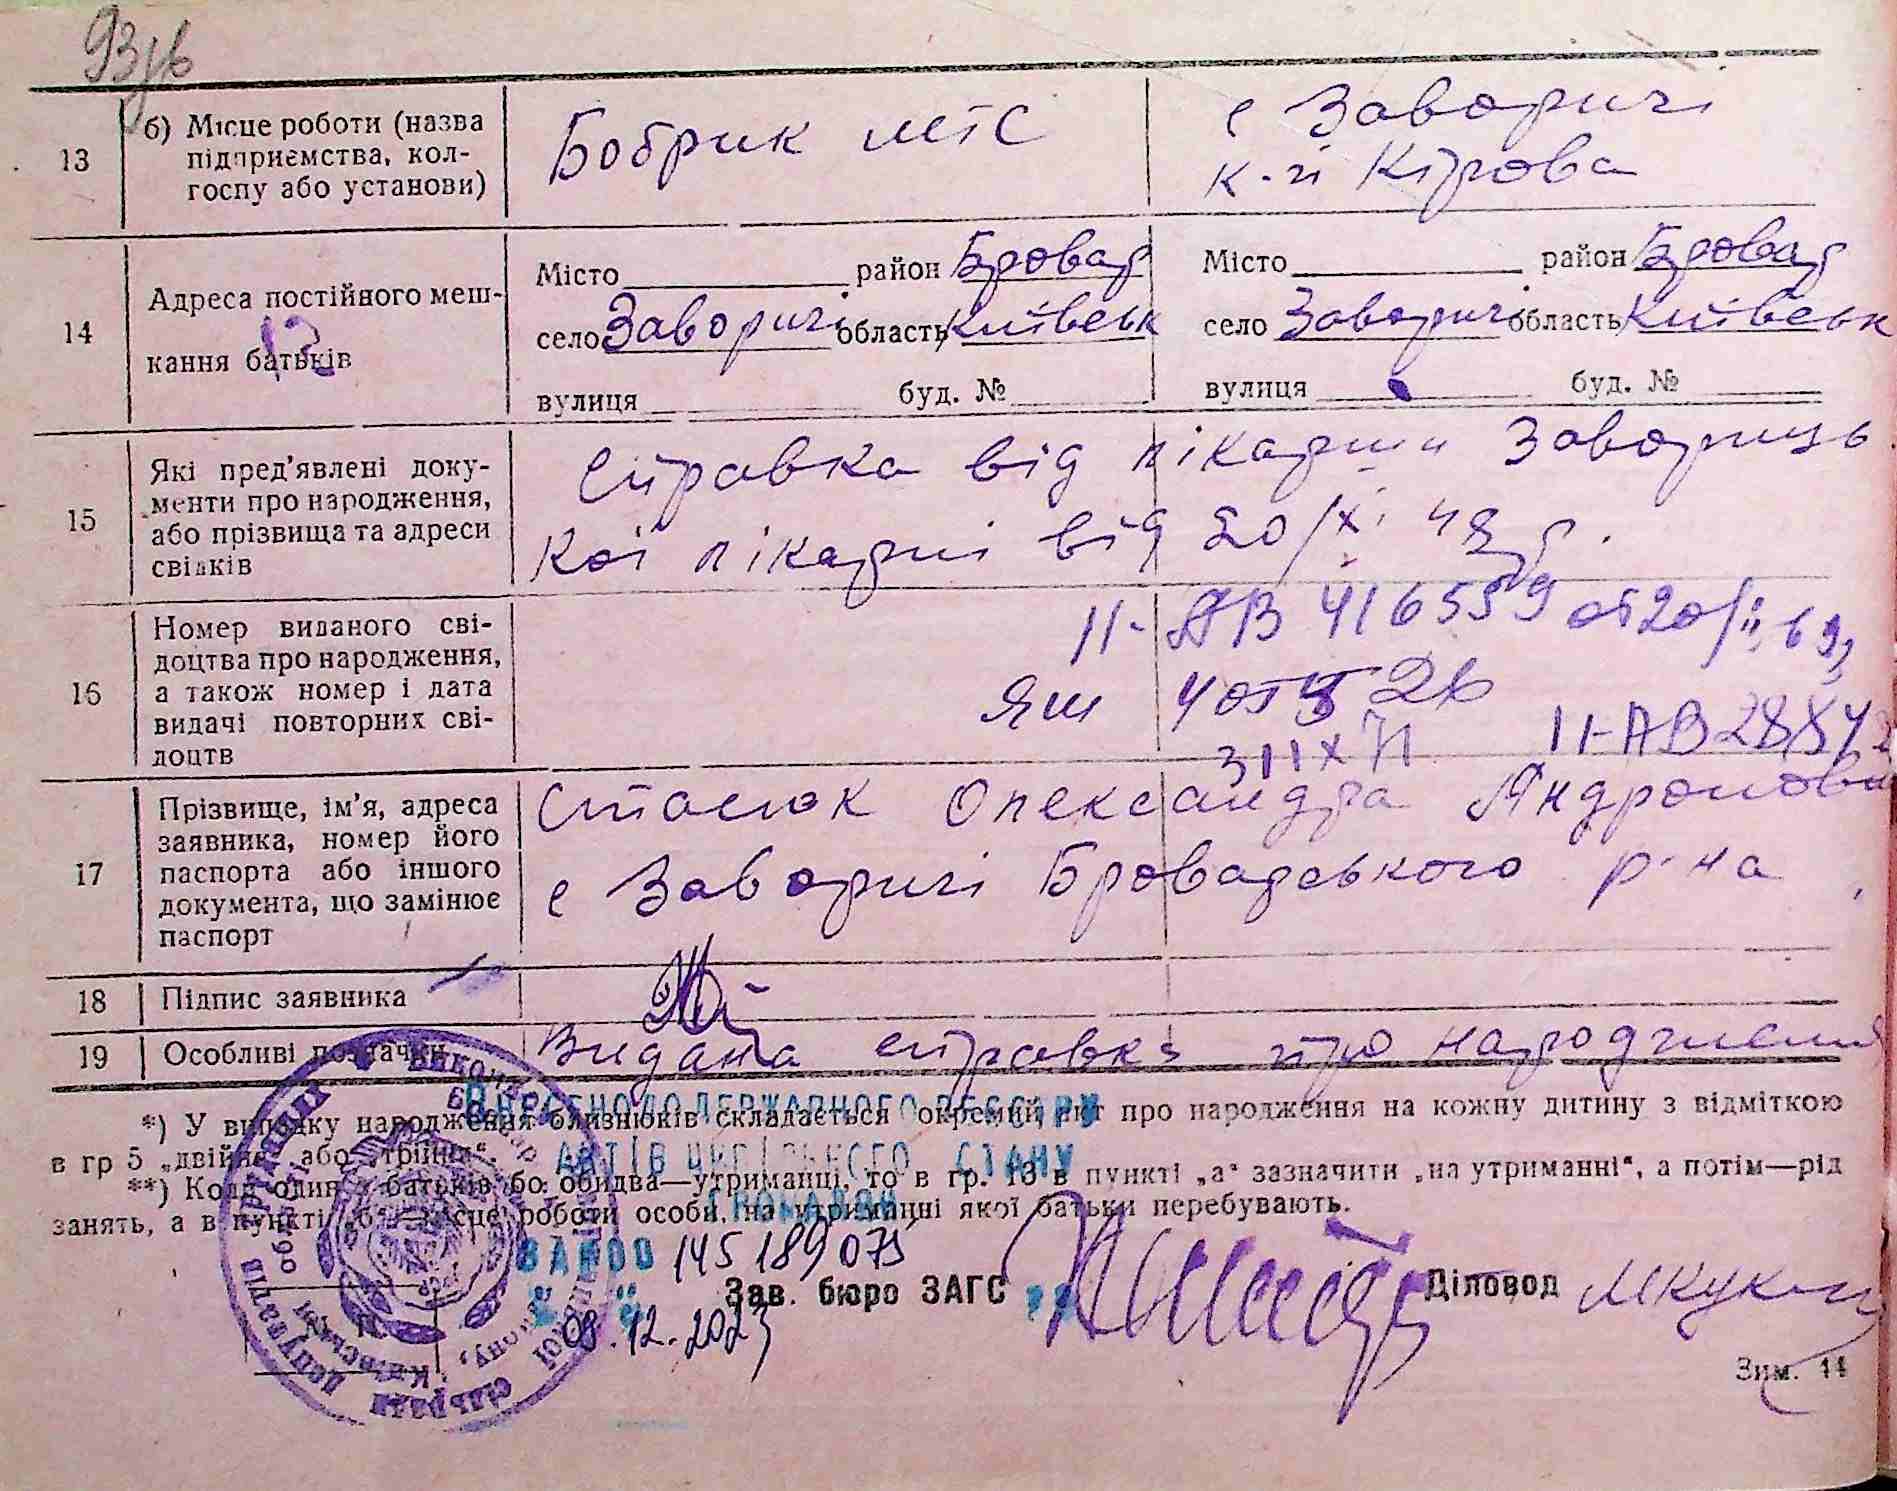 93/в
13
б) Місце роботи (назва
підприємства, кол-
госпу або установи)
Бобрик мтс
с Заворичі
к-п Кірова
14
Адреса постійного меш-
кання батьків
Місто район Бровар
село Заворичі область Київськ
вулиця буд. №
Місто район Бровар
село Заворичі область Київськ
вулиця буд. №
15
Які пред'явлені доку-
менти про народження,
або прізвища та адреси
свідків
Справка від лікарні Заворись
кої лікарні від 20/XI
16
Номер виданого сві-
доцтва про народження,
а також номер і дата
видачі повторних сві-
доцтв
II-АВ 416559 от 20/II 69
ЯШ
II-АВ
17
Прізвище, ім'я, адреса
заявника, номер його
паспорта або іншого
документа, що замінює
паспорт
Стасюк Олександра Андронова
с Заворичі Броварського р-на
18
Підпис заявника
19
Особливі позначки
Видана справка про народження
*) У випадку народження близнюків складається окремий акт про народження на кожну дитину з відміткою
в гр 5 „двійня“ або „трійня“.
**) Коли один з батьків бо обидва—утриманці, то в гр. 13 в пункті „а“ зазначити „на утриманні“, а потім—рід
занять, а в пункті „б“ місце роботи особи, на утриманні якої батьки перебувають.
ВНЕСЕНО ДО ДЕРЖАВНОГО РЕЄСТРУ
АКТІВ ЦИВІЛЬНОГО СТАНУ
ГРОМАДЯН
ЗА №00 145 189 075
08.12.2023
Зав. бюро ЗАГС
Діловод
Зим. 14